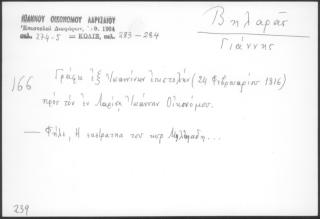 ΙΩΑΝΝΟΥ ΟΙΚΟΝΟΜΟΥ ΛΑΡΙΣΑΙΟΥ
Ἐπιστολαί Διαφόρων, 1964
σελ. 274-5 = ΚΩΔΙΞ, σελ. 283-284
Βηλαρᾶς
Γιάννης
166
Γράφει ἐξ Ἰωαννίνων ἐπιστολήν (24 Φεβρουαρίου 1816)
πρός τόν ἐν Λαρίσῃ Ἰωάννην Οἰκονόμου.
— Φίλε, Ἡ του κυρ
239